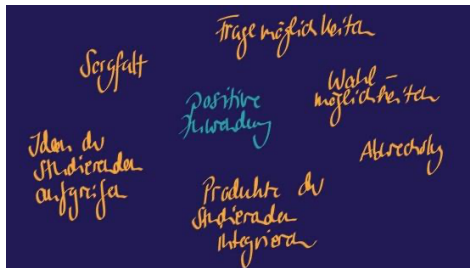 Fragemöglichkeiten
Sorgfalt
Wahl-
möglichkeiten
positive
Zuwendung
Abwechslg
Ideen der
Studierenden
aufgreifen
Produkte der
Studierenden
integrieren